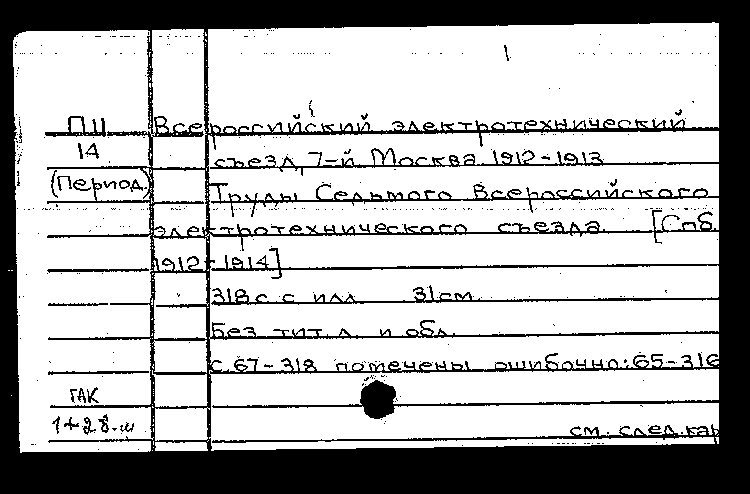 1
П.11 Всероссийский электротехнический
14 съезд, 7-й. Москва. 1912-1913
(Период.) Труды Седьмого Всероссийского
электротехнического съезда. [Спб.
1912-1914]
318 с. с илл. 31 см.
Без тит. л. и обл.
С. 67-318 помечены ошибочно: 65-316
ГАК
1+28.ш
см. след. кар